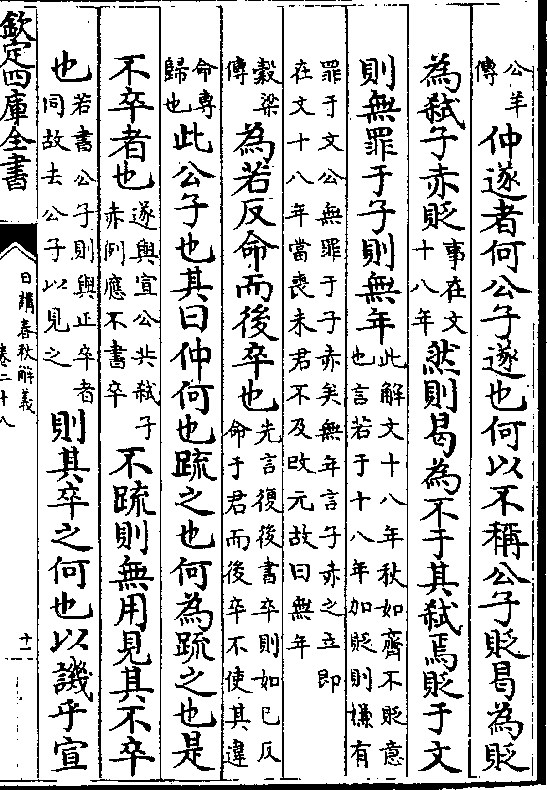 公羊傳仲遂者何公子遂也何以不稱公子貶曷為貶
為弑子赤貶事在文十八年然則曷為不于其弑焉貶于文
則無罪于子則無年此解文十八年秋如齊不貶意也言若于十八年加貶則嫌有
罪于文公無罪于子赤矣無年言子赤之立即在文十八年當喪未君不及改元故曰無年
穀梁傳為若反命而後卒也先言復後書卒則如已反命于君而後卒不使其違
命專歸也此公子也其曰仲何也疏之也何為疏之也是
不卒者也遂與宣公共弑子赤例應不書卒不疏則無用見其不卒
也若書公子則與正卒者同故去公子以見之則其卒之何也以譏乎宣
欽定四庫全書
日講春秋解義
卷二十八
十一